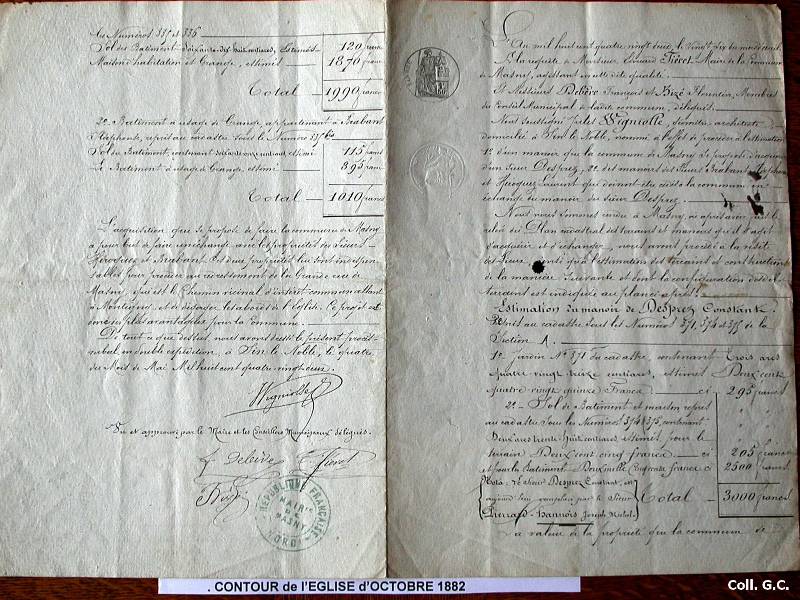 Au Numéros 335 et 336
Sol du Batiment Soixante-dix huit centiares, Estimés 120 francs
Maison d'habitation et Grange, estimés 1870 francs
Total 1990 francs
2º Batiment à usage de Grange, appartenant à Brabant
repris au cadastre sous le Numéro
Sol du Batiment, contenant centiares estimé 115 francs
Le Batiment à usage de Grange, estimé 895 francs
Total 1010 francs
L'acquisition que se propose de faire la commune de Masny
a pour but de faire un échange avec les propriétés des Sieurs
et Brabant. Ces deux propriétés lui sont indispen-
sables pour procéder au redressement de la Grande rue de
Masny, qui est le Chemin vicinal d'intérêt commun allant
à Montigny, et de dégager les abords de l'Eglise. Ce projet est
des plus avantageux pour la Commune.
De tout ce que dessus, nous avons dressé le présent procès-
verbal en double expédition, à Sin le Noble, le quatre
du Mois de Mai Mil huit cent quatre vingt deux.
Wigniolle
Vu et approuvé par le Maire et les Conseillers Municipaux délégués.
F Delière Fiévet
Bizé
RÉPUBLIQUE FRANÇAISE
MAIRIE
DE
MASNY
(NORD)
L'An mil huit cent quatre vingt deux, le vingt six du mois d'avril
A la requête de Monsieur Edouard Fiévet Maire de la Commune
de Masny, agissant en cette dite qualité.
Et Messieurs Delière François et Bizé Florentin, Membres
du Conseil Municipal de ladite commune, délégués.
Nous soussigné Jules Wigniolle, géomètre architecte
domicilié à Sin le Noble, nommé à l'effet de procéder à l'estimation
1º d'un manoir que la commune de Masny se propose d'acquérir
d'un sieur Desprez, 2º des manoirs des Sieurs Brabant
et Laurent qui doivent être cédés à la commune en
échange du manoir du sieur Desprez.
Nous nous sommes rendu à Masny, où après avoir
du Plan cadastral des terrains et manoirs qu'il s'agit
d'acquérir et d'échanger, nous avons procédé à la visite
des lieux, ainsi qu'à l'estimation des terrains et constructions
de la manière suivante et dont la configuration des dits
terrains est indiquée au plan ci après:
Estimation du manoir de Desprez Constant.
Repris au cadastre sous les Numéros 371, 374 et 375 de la
Section A.
1º Jardin Nº 371 du cadastre, contenant Trois ares
quatre vingt treize centiares, estimé Deux cent
quatre-vingt quinze Francs ci 295 francs
2º Sol de Batiment et maison repris
au cadastre sous les Numéros 374 & 375, contenant
Deux ares trente huit centiares estimé pour le
terrain Deux cent cinq francs 205 francs
et pour le batiment Deux mille Cinq cents francs ci 2500 francs
Nota: Le Sieur Desprez Constant, est
aujourd'hui remplacé par le Sieur Total 3000 francs
Joseph Michel.
La valeur de la propriété que la commune de
. CONTOUR de l'EGLISE d'OCTOBRE 1882
Coll. G.C.